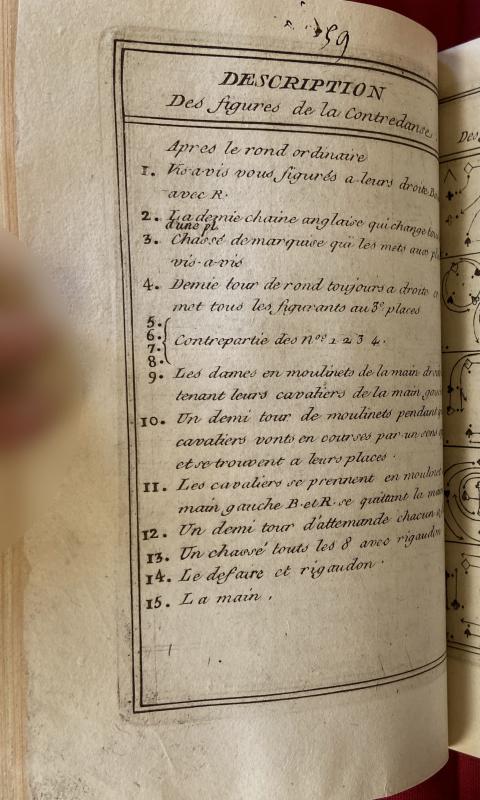 59
DESCRIPTION
Des figures de la Contredanse.
Apres le rond ordinaire
1. Vis-a-vis vous figurés a leurs droite
avec R.
2. La demie chaine anglaise qui change
d'une pl.
3. Chassé de marquise qui les mets aux
vis-a-vis
4. Demie tour de rond toujours a droite
met tous les figurants au 3e places
5.
6. Contrepartie des nos 1 2 3 4.
7.
8.
9. Les dames en moulinets de la main
tenant leurs cavaliers de la main
10. Un demi tour de moulinets pendant
cavaliers vonts en courses par un sens
et se trouvent a leurs places.
11. Les cavaliers se prennent en
main gauche B. et R. se quittant la
12. Un demi tour d'attemande chacun
13. Un chassé touts les 8 avec rigaudon
14. Le defaire et rigaudon.
15. La main.